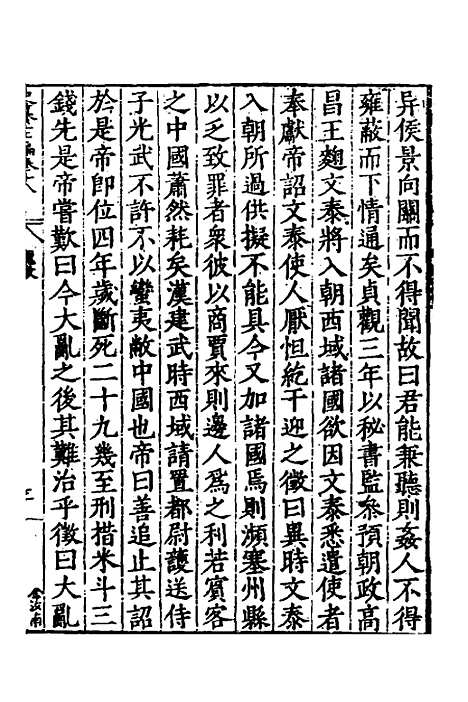 异侯景向關而不得聞故曰君能兼聽則姦人不得
雍蔽而下情通矣貞觀三年以秘書監參預朝政高
昌王麴文泰將入朝西域諸國欲因文泰悉遣使者
奉獻帝詔文泰使人厭怛紇干迎之徵曰異時文泰
入朝所過供擬不能具今又加諸國焉則瀕塞州縣
以乏致罪者衆彼以商賈來則邊人爲之利若賓客
之中國蕭然耗矣漢建武時西域請置都尉護送侍
子光武不許不以蠻夷敝中國也帝曰善追止其詔
於是帝即位四年歲斷死二十九幾至刑措米斗三
錢先是帝嘗歎曰今大亂之後其難治乎徵曰大亂